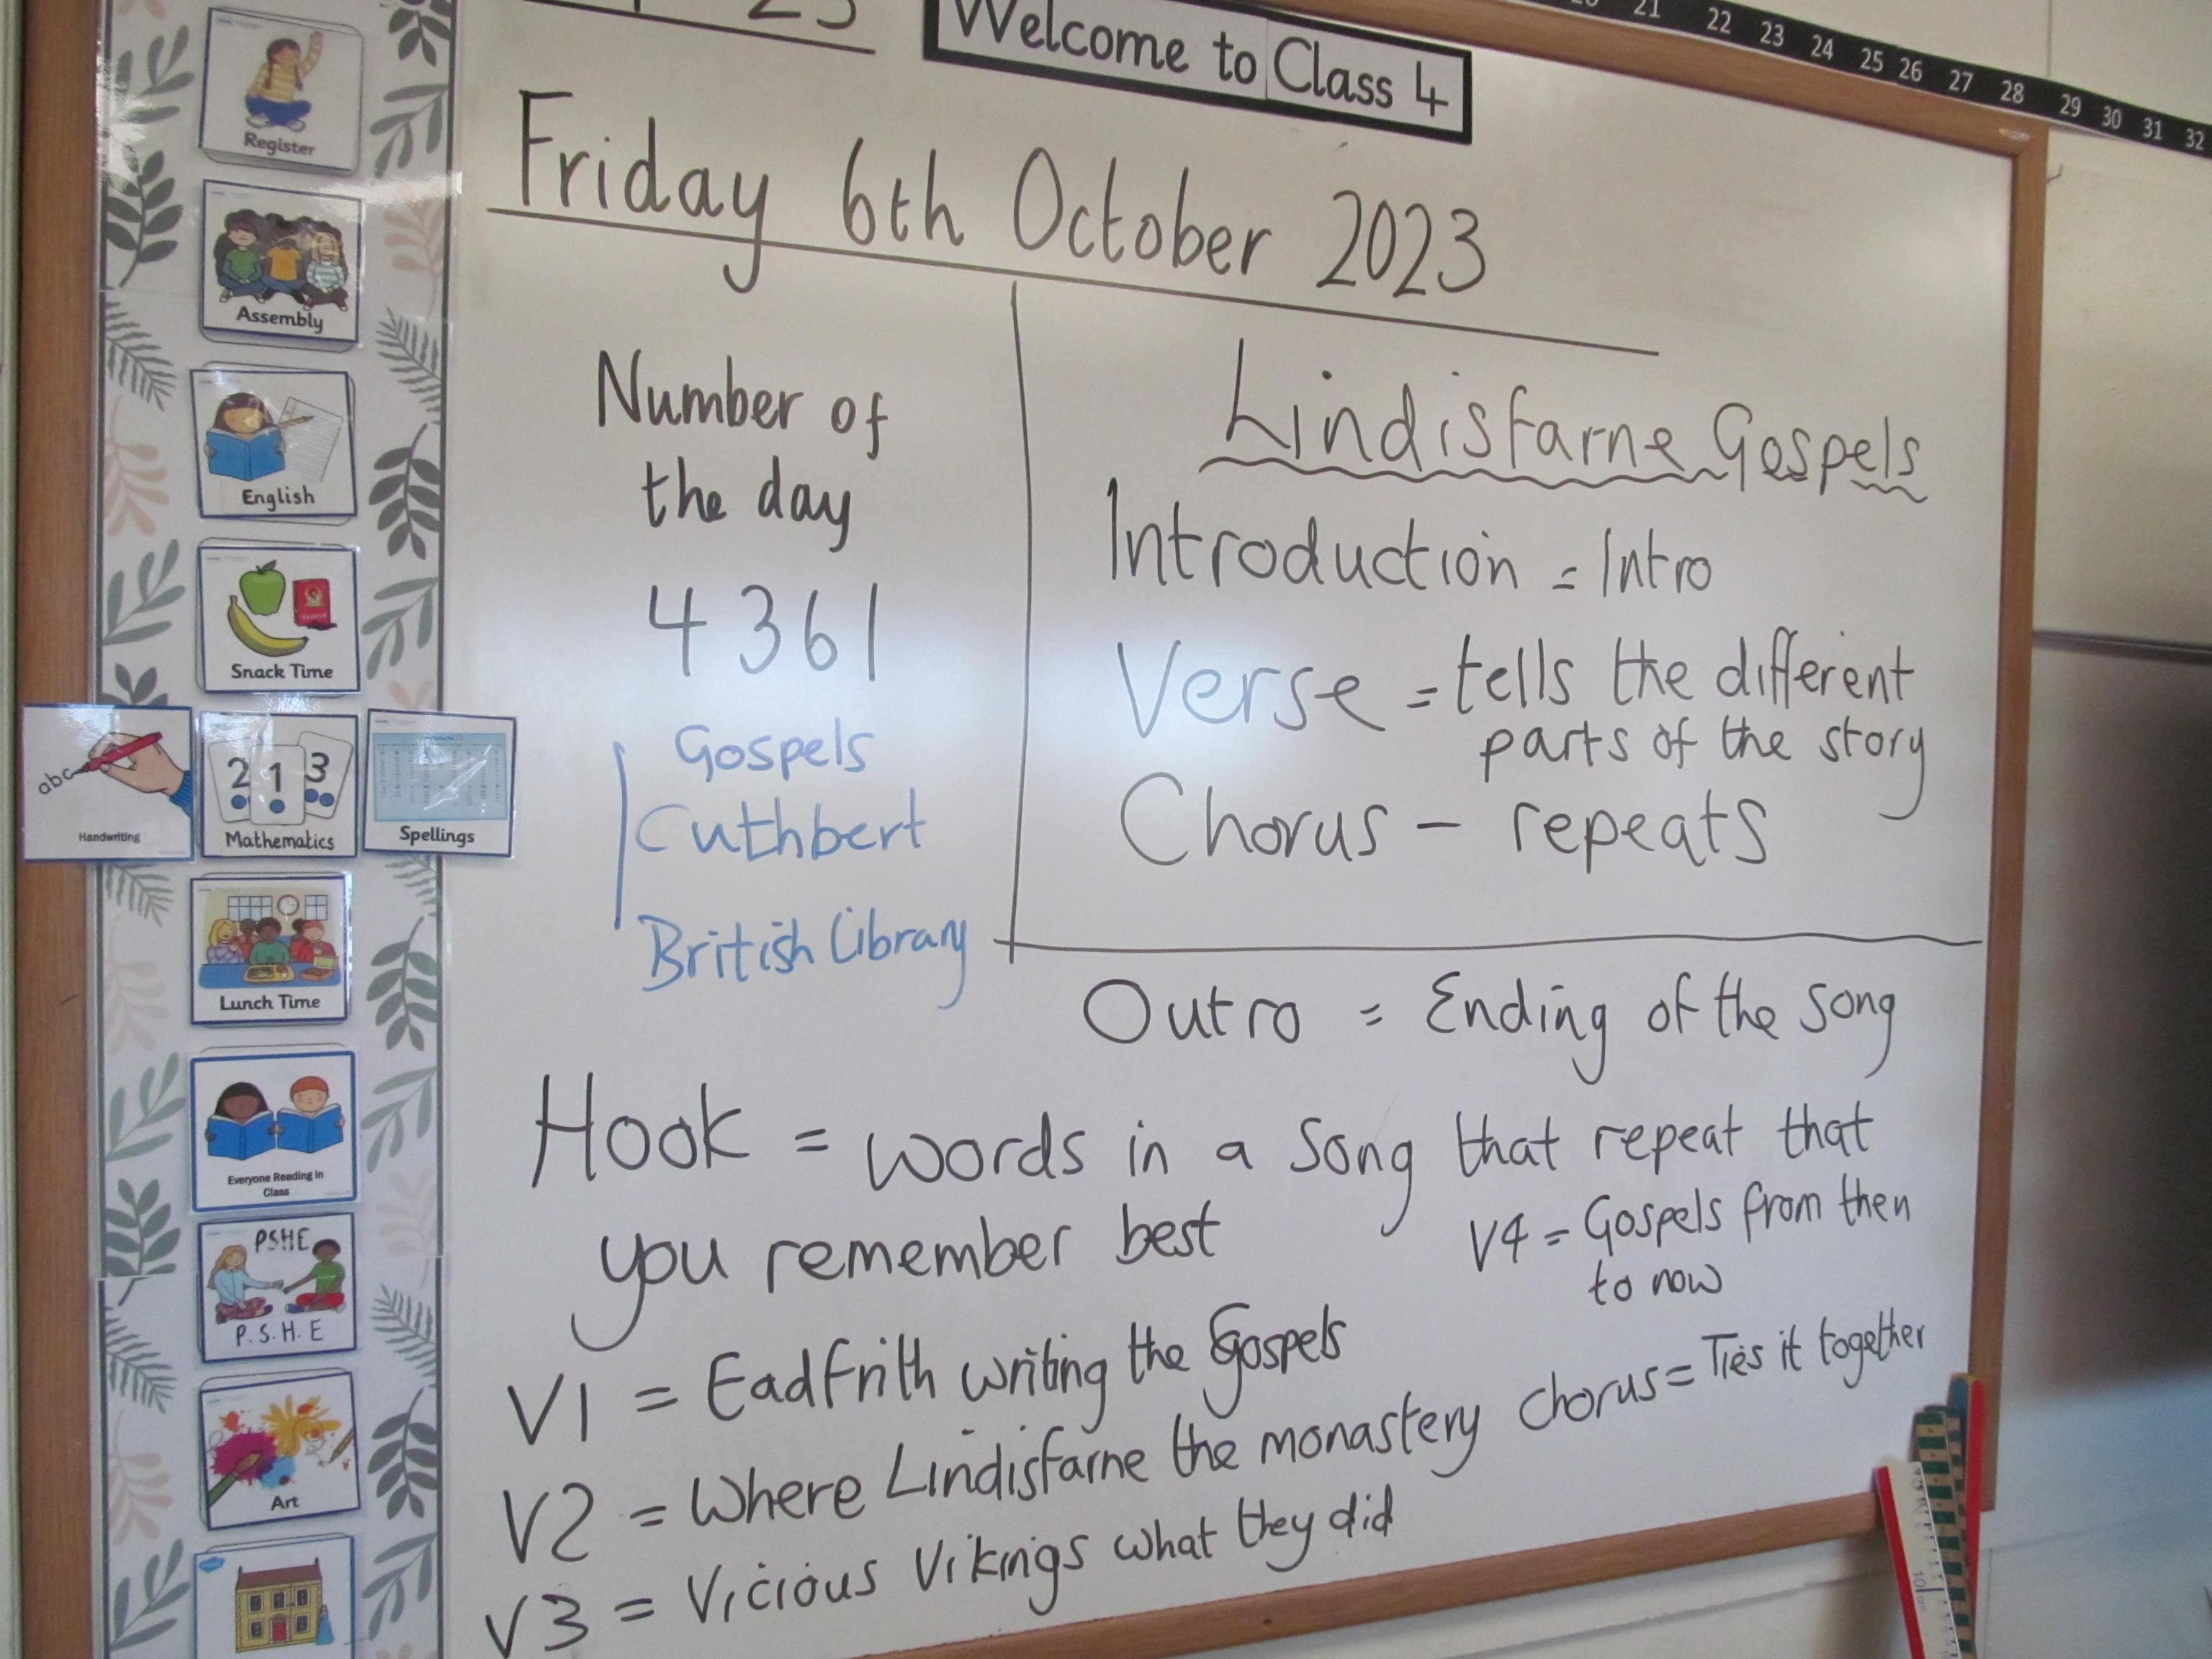 Welcome to Class 4
20 21 22 23 24 25 26 27 28 29 30 31 32
23
Friday 6th October 2023
Register
Assembly
English
Snack Time
abc
Handwriting
2 1 3
Mathematics
Spellings
Lunch Time
Everyone Reading in
Class
PSHE
P.S.H.E
Art
Number of
the day
4361
Gospels
Cuthbert
British Library
Lindisfarne Gospels
Introduction = Intro
Verse = tells the different
parts of the story
Chorus - repeats
Outro = Ending of the song
Hook = words in a song that repeat that
you remember best
V4 = Gospels from then
to now
V1 = Eadfrith writing the Gospels
chorus = Ties it together
V2 = Where Lindisfarne the monastery
V3 = Vicious Vikings what they did
10